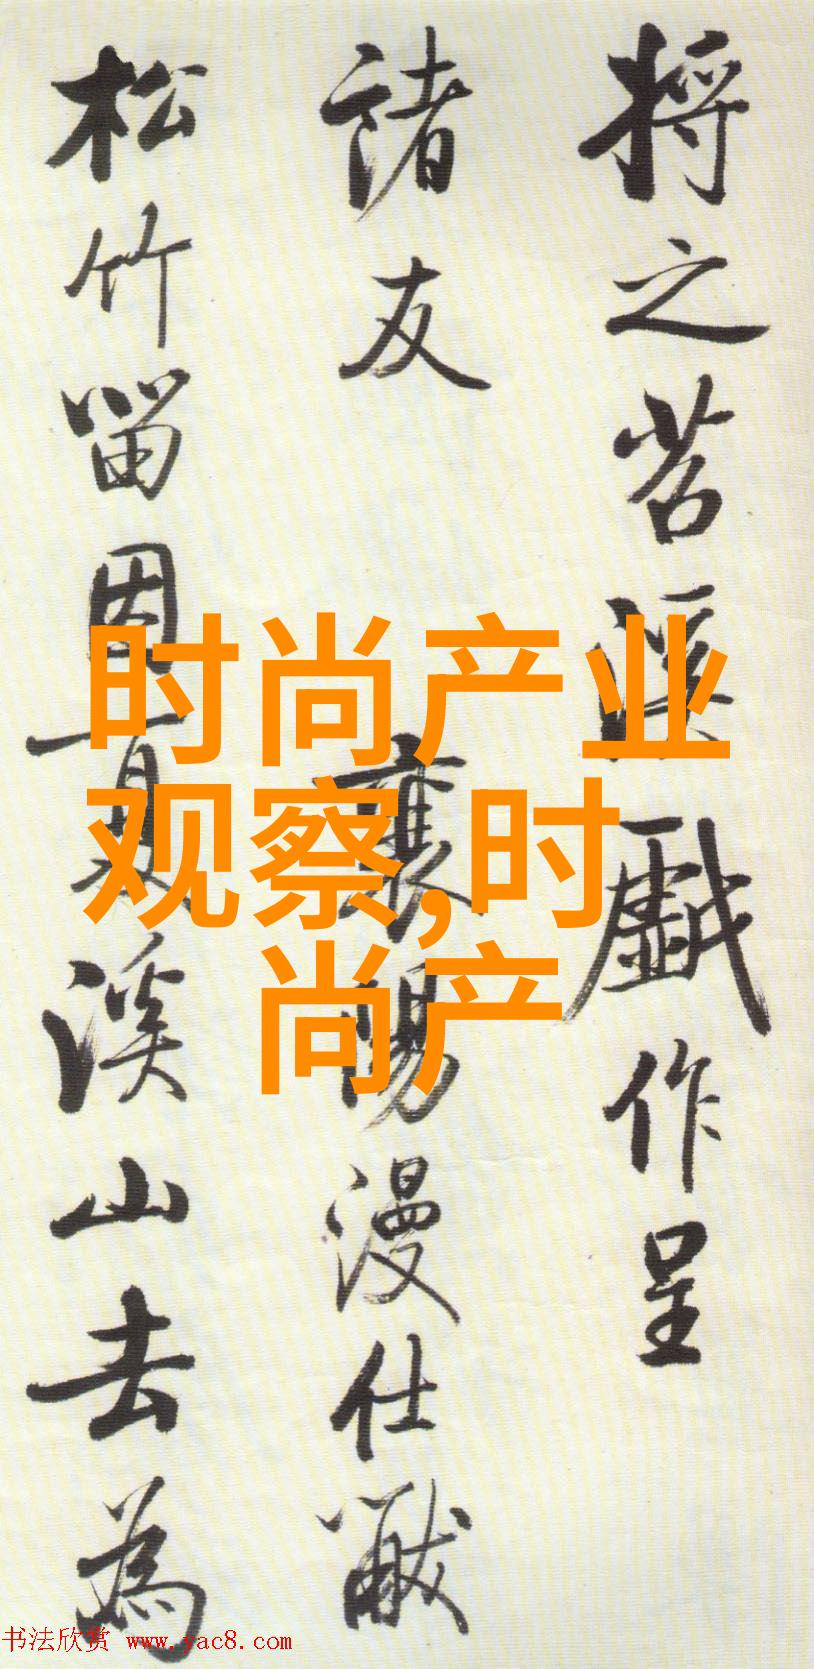 将之苕溪戲作呈
諸友
襄陽漫仕黻
松竹留因夏溪山去為
时尚产业
观察,时
尚产
书法欣赏 www.yac8.com